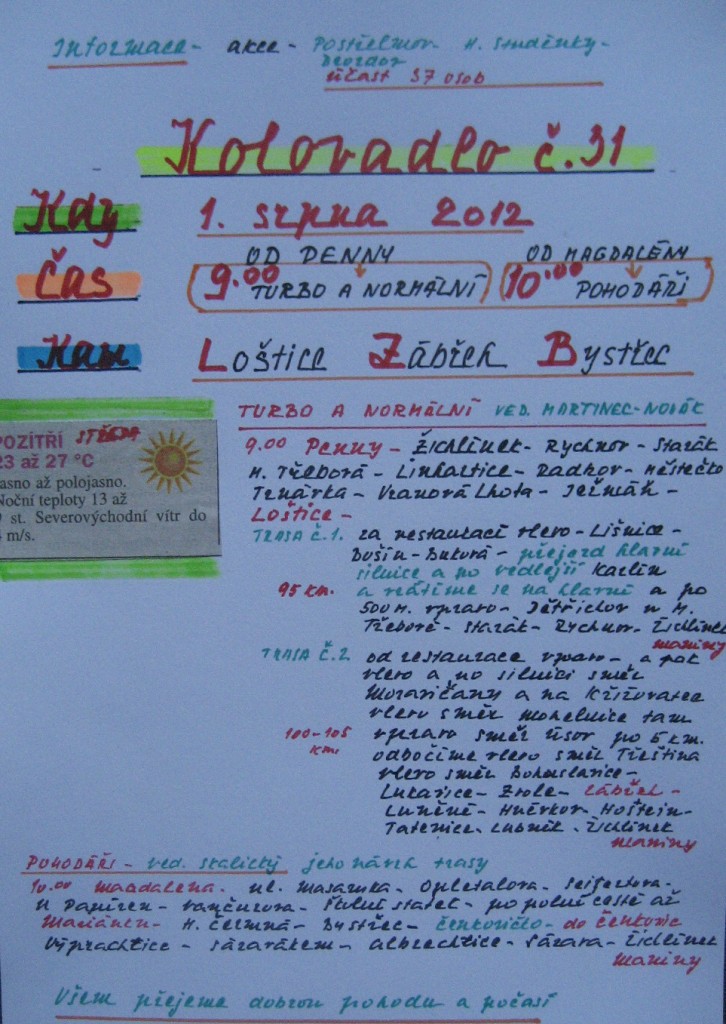 Informace - akce - Postřelmov H. Studénky -
účast 37 osob
Kolovadlo č. 31
Kdy 1. srpna 2012
OD PENNY OD MAGDALÉNY
Čas 9.00 TURBO A NORMÁLNÍ 10.00 POHODÁŘI
Kam Loštice Zábřeh Bystřec
TURBO A NORMÁLNÍ VED. MARTINEC-NOVÁK
POZÍTŘÍ STŘEDA
23 až 27 °C
asno až polojasno.
Noční teploty 13 až
st. Severovýchodní vítr do
m/s.
9.00 Penny - Žichlínek - Rychnov - Starák
M. Třebová - Linhartice - Radkov - Městečko
Trnávka - Vranová Lhota - Jeřmáň -
Loštice -
TRASA Č. 1. za restaurací vlevo - Líšnice -
Bušín - Buková - přejezd hlavní
silnice a po vedlejší Karlín
95 km. a vrátíme se na hlavní a po
500 M. vpravo - Dětřichov u M.
Třebové - Starák - Rychnov - Žichlínek
maniny
TRASA Č. 2 od restaurace vpravo - a pak
vlevo a po silnici směr
Moravičany a na křižovatce
vlevo směr Mohelnice tam
100-105 km. vpravo směr Úsov po 5 km.
odbočíme vlevo směr Třeština
vlevo směr Bohuslavice -
Lukavice - Zvole - Zábřeh -
Lupěné - Hněvkov - Hoštejn -
Tatenice - Lubník - Žichlínek
maniny
POHODÁŘI - ved. Skalický jeho návrh trasy
10.00 Magdalena - ul. Masaryka - Opletalova - Seifertova -
U Papíren - Vančurova - Školní statek - po polní cestě až
Mariánku - H. Čermná - Bystřec - Čenkovičko - do Čenkovic
Výprachtice - Albrechtice - Sázava - Žichlínek
maniny
Všem přejeme dobrou pohodu a počasí